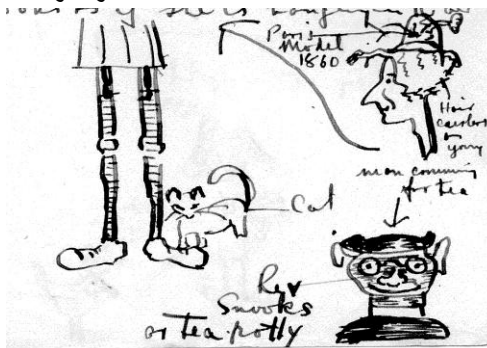 Paris
Model
1860
Hair
on
young
man comming
for tea
Cat
Rev
Snooks
or Tea potty